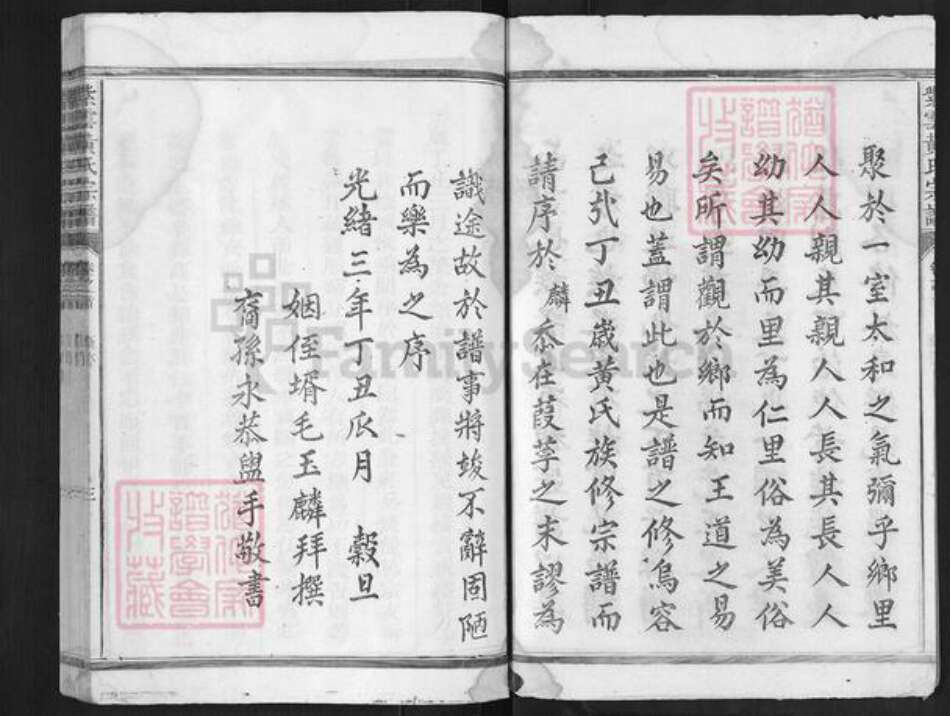 聚於一室太和之氣彌乎鄉里
人人親其親人人長其長人人
幼其幼而里為仁里俗為美俗
矣所謂觀於鄉而知王道之易
易也蓋謂此也是譜之修烏容
已㢤丁丑歲黃氏族修宗譜而
請序於麟忝在葭莩之末謬為
識途故於譜事將竣不辭固陋
而樂為之序
光緒三年丁丑瓜月 穀旦
姻侄壻毛玉麟拜撰
裔孫永恭盥手敬書
紫雲黃氏宗譜
FamilySearch